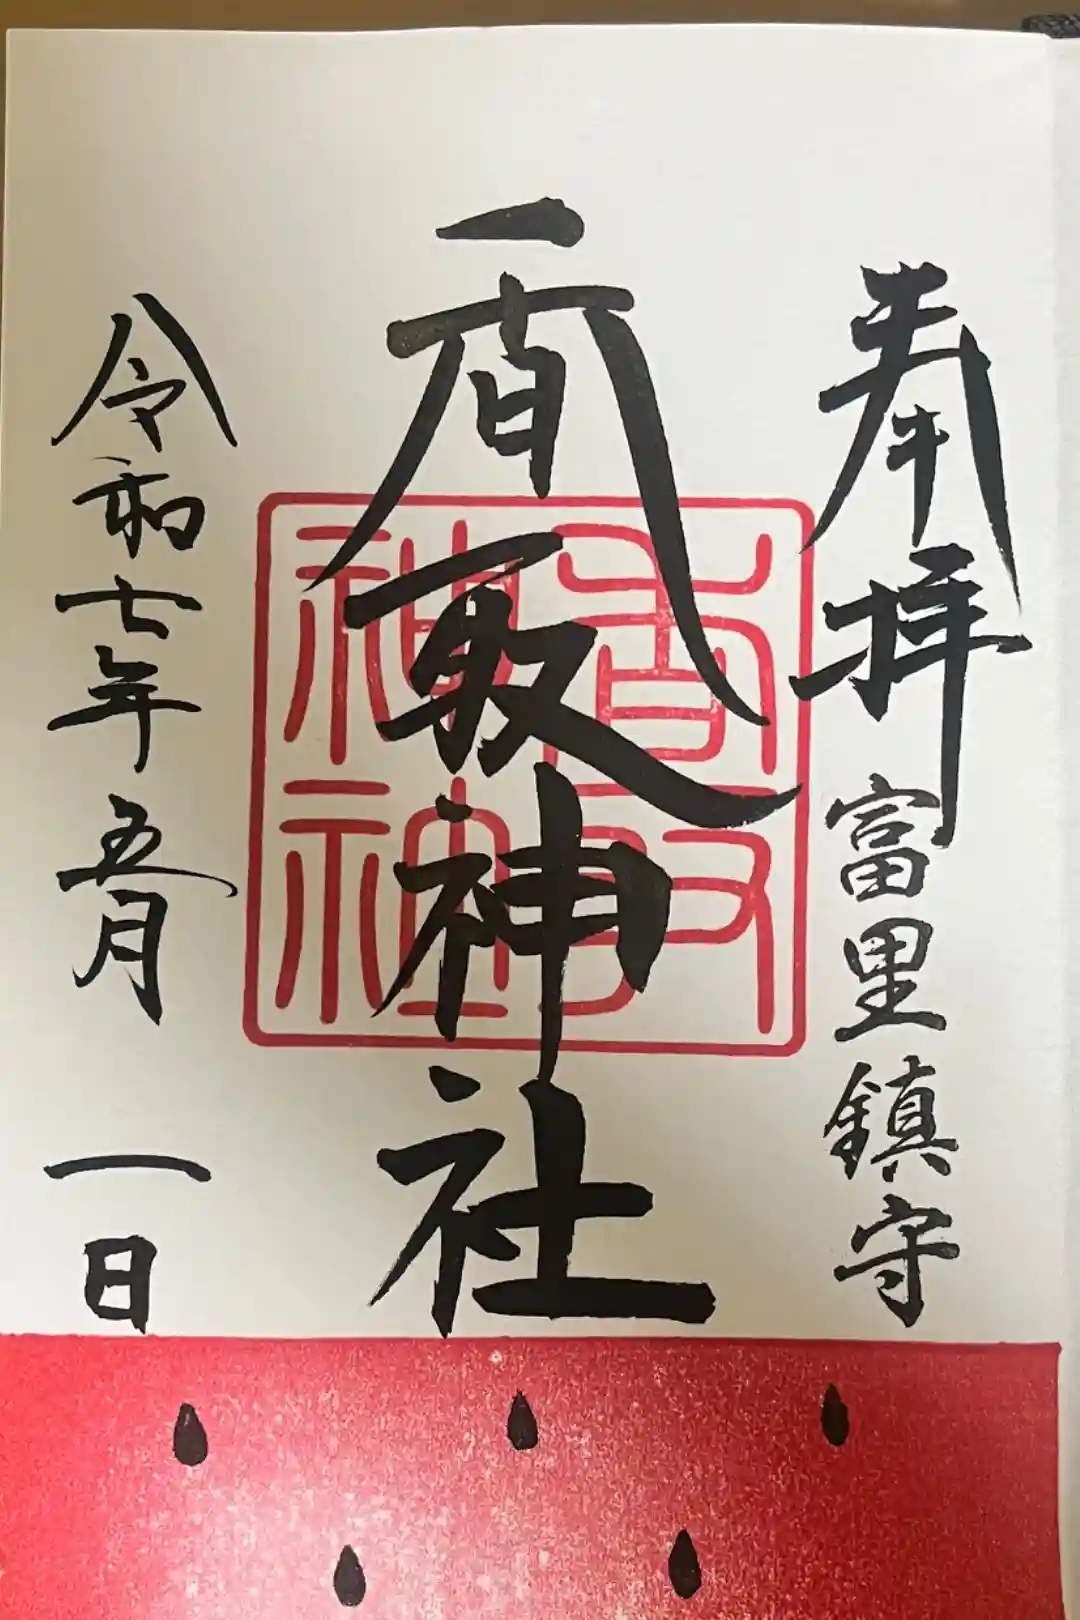 奉拝 富里鎮守
香取神社
香取
神社
令和七年五月一日